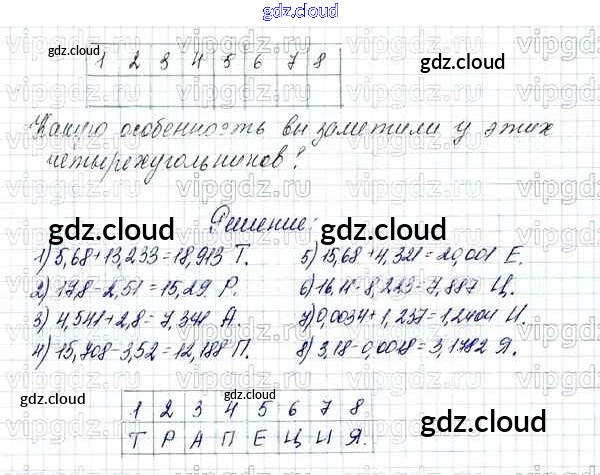 gdz.cloud
gdz.cloud
gdz.cloud
1 2 3 4 5 6 7 8
Какую особенность вы заметили у этих
четырехугольников?
Решение:
gdz.cloud gdz.cloud
1) 5,68+13,233=18,913 Т. 5) 15,68+4,321=20,001 Е.
2) 17,8-2,51=15,29 Р. 6) 16,11-8,223=7,887 Ц.
3) 4,541+2,8=7,341 А. 7) 0,0034+1,237=1,2404 И.
4) 15,708-3,52=12,188 П. 8) 3,18-0,0018=3,1782 Я.
gdz.cloud gdz.cloud
1 2 3 4 5 6 7 8
Т Р А П Е Ц И Я.
gdz.cloud
gdz.cloud